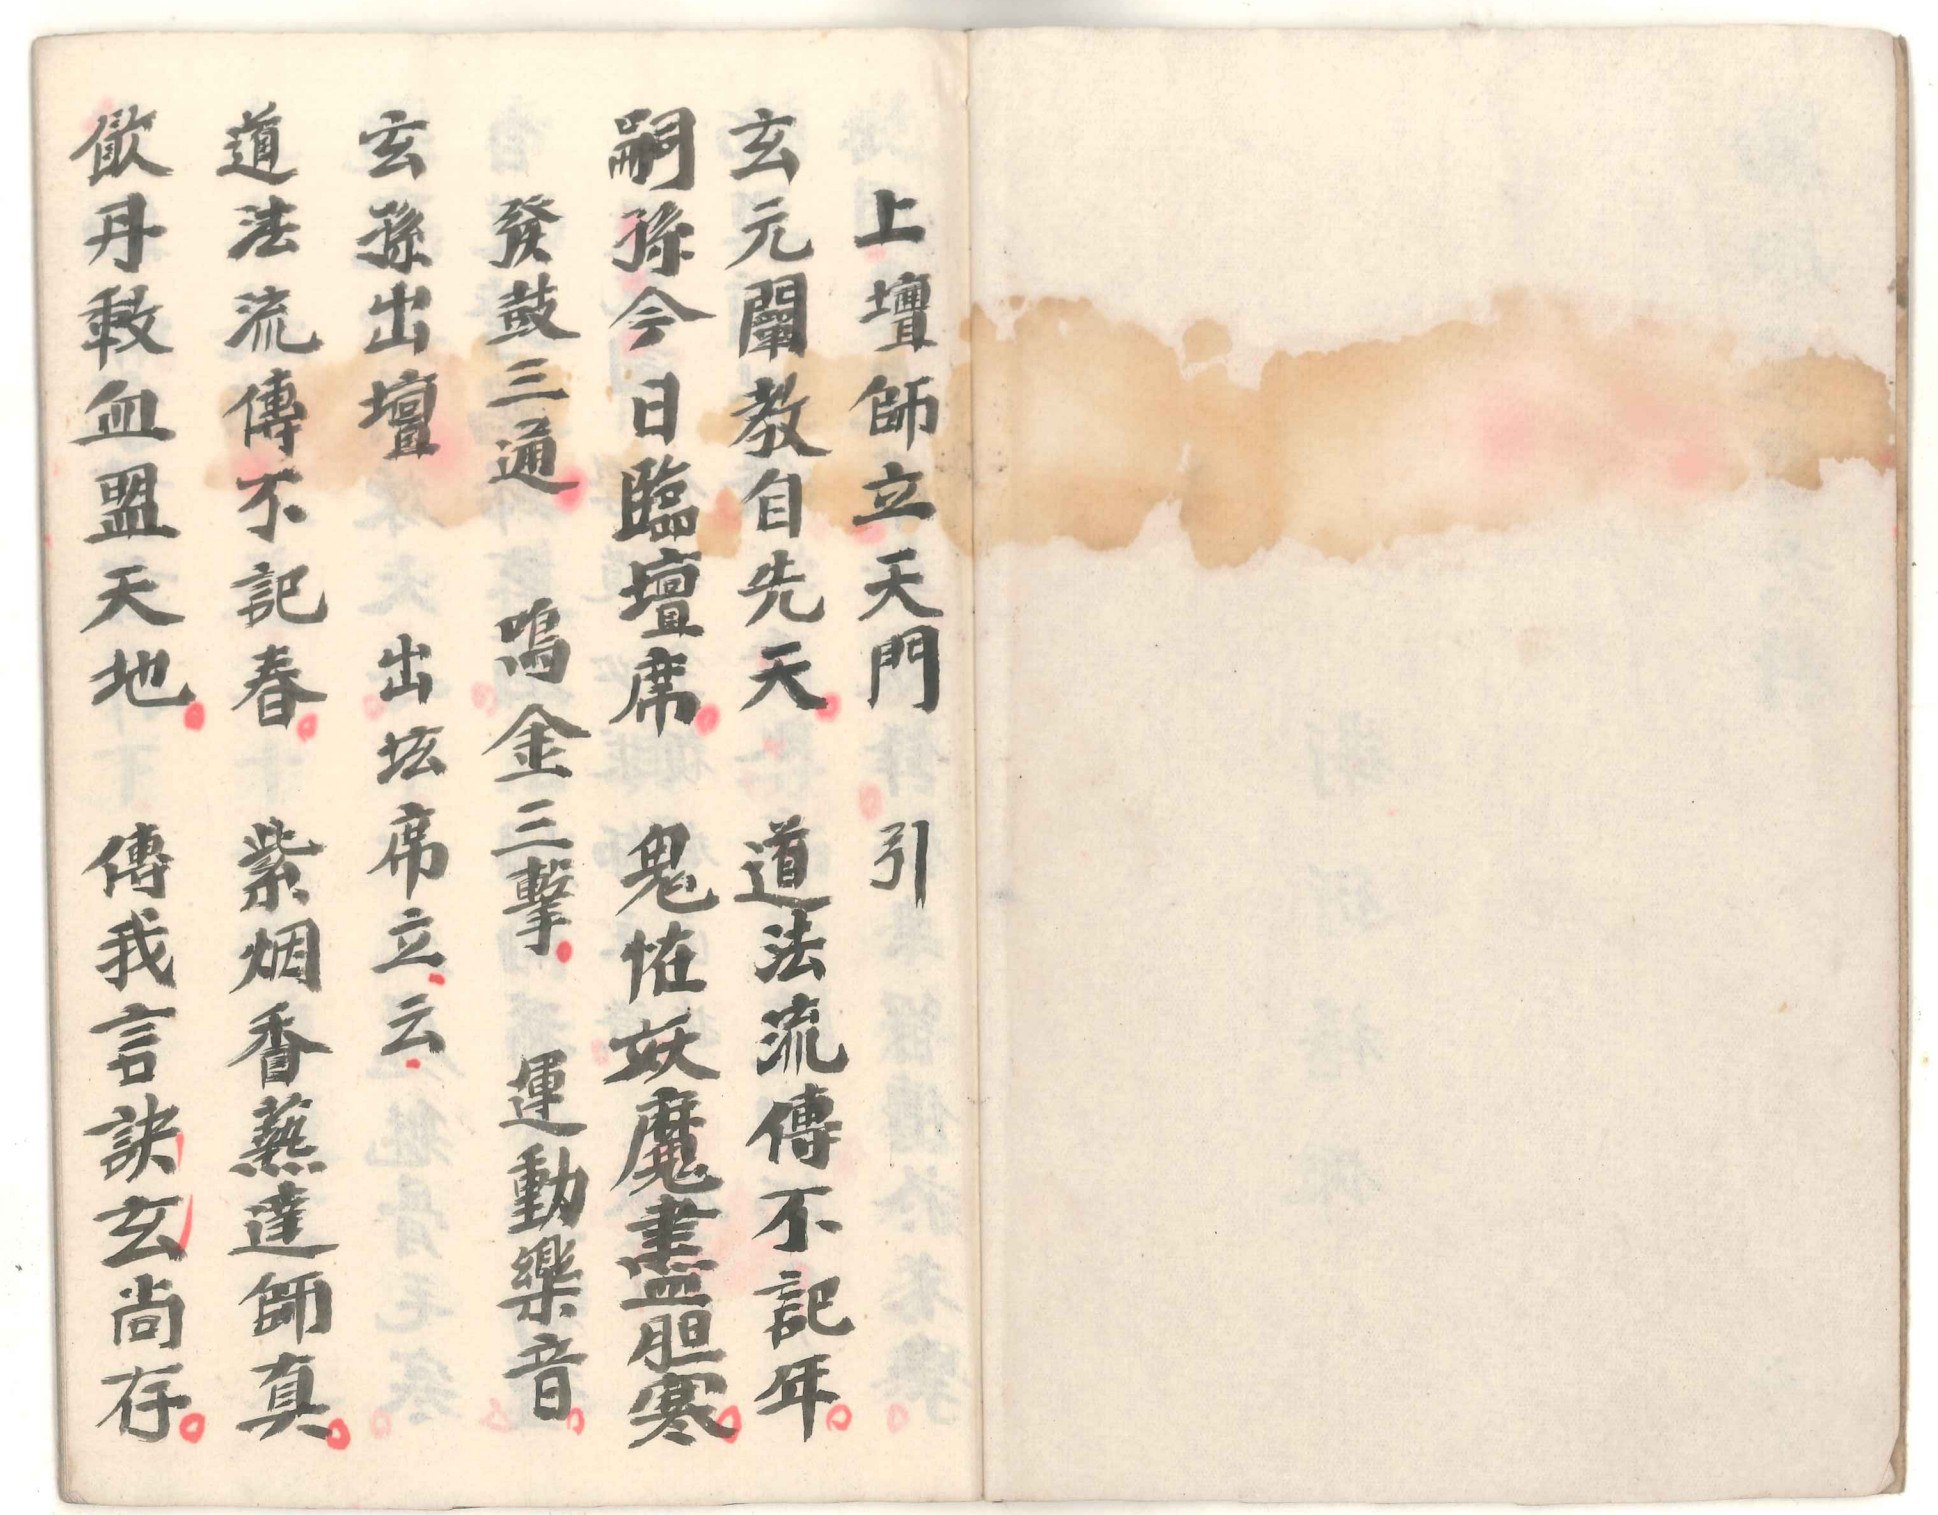 上壇師立天門 引
玄元闡教自先天 道法流傳不記年
嗣孫今日臨壇席 鬼恠妖魔盡胆寒
發鼓三通 鳴金三擊 運動樂音
玄孫出壇 出坛席立云
道法流傳不記春 紫烟香爇達師真
飲丹敕血盟天地 傳我言訣玄尚存